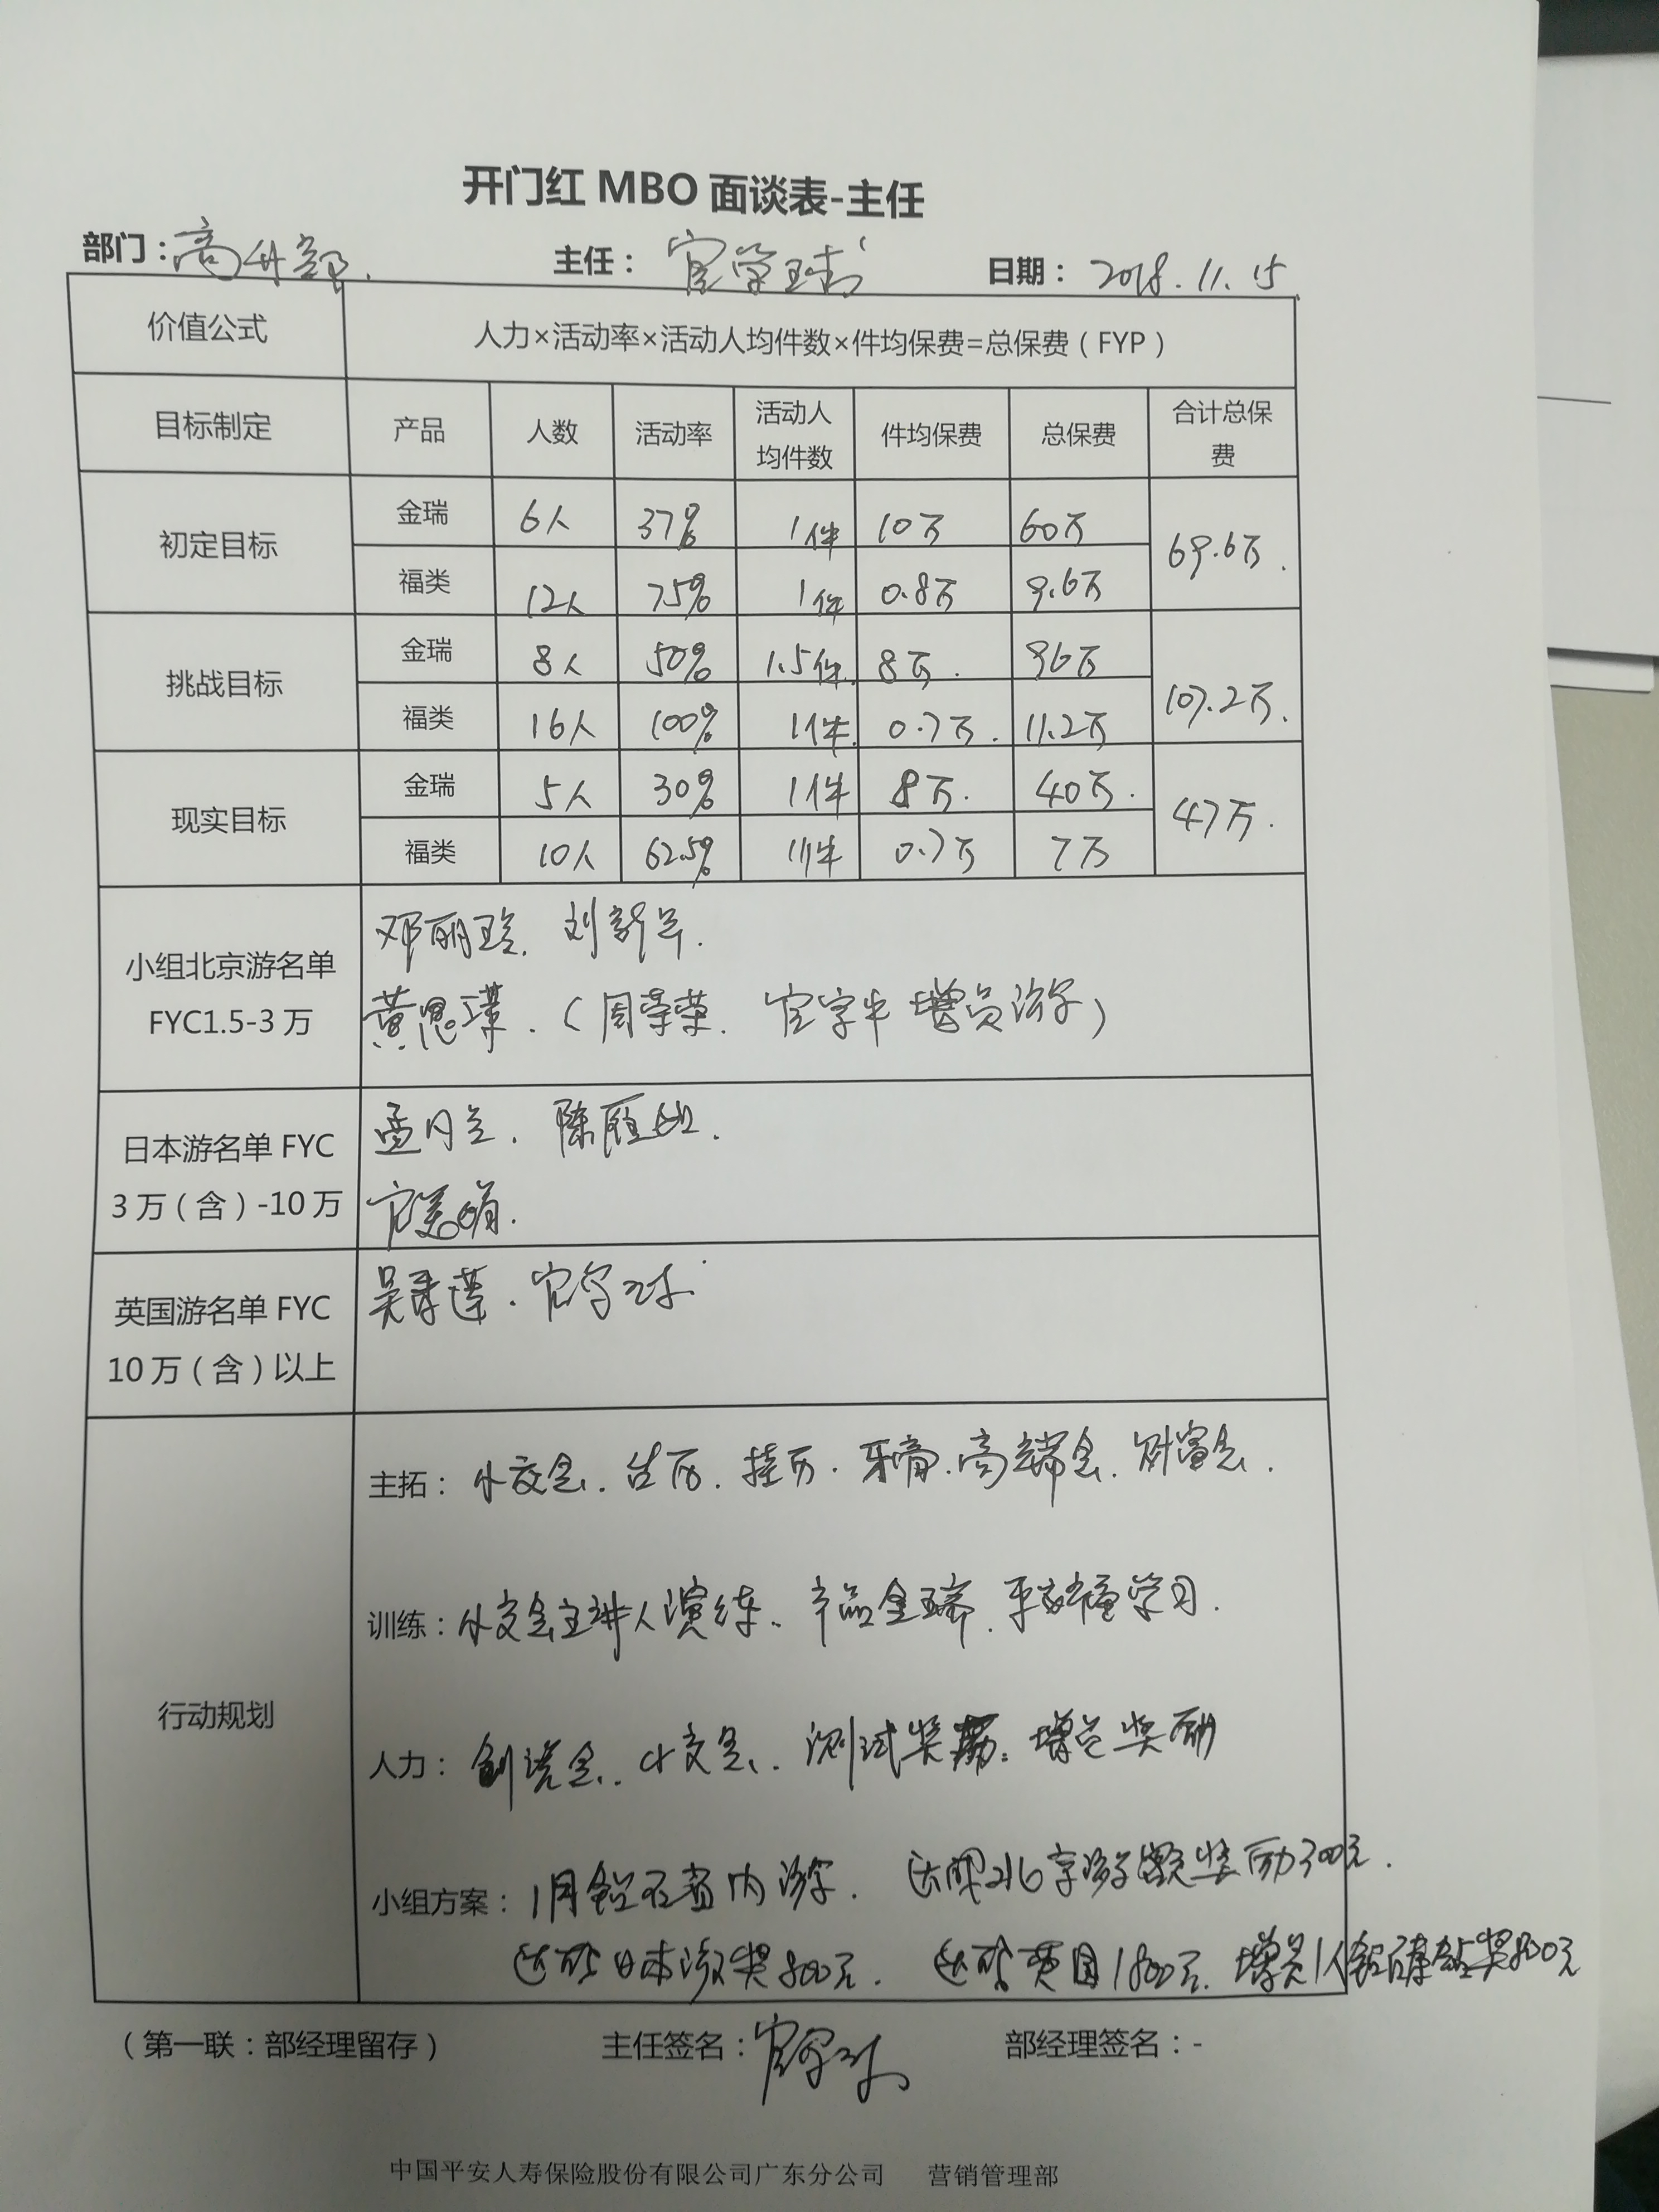 开门红 MBO 面谈表-主任
部门：高升部. 主任：官学球 日期：2018.11.15
价值公式 人力×活动率×活动人均件数×件均保费=总保费（FYP）
目标制定 产品 人数 活动率 活动人均件数 件均保费 总保费 合计总保费
初定目标 金瑞 6人 37% 1件 10万 60万 69.6万.
福类 12人 75% 1件 0.8万 9.6万
挑战目标 金瑞 8人 50% 1.5件. 8万. 96万 107.2万.
福类 16人 100% 1件. 0.7万. 11.2万
现实目标 金瑞 5人 30% 1件 8万. 40万. 47万.
福类 10人 62.5% 1件 0.7万 7万
小组北京游名单
FYC1.5-3万
邓丽珍. 刘
黄恩 .（周荣荣. 官学 增员游学）
日本游名单 FYC
3万（含）-10万
孟月兰. 陈
官 娟.
英国游名单 FYC
10万（含）以上
吴 莲. 官学球
行动规划
主拓：小交会. 台历. 挂历. 牙膏. 高端会. 财富会.
训练：小交会主讲人演练. 产品金瑞. 学习.
人力：创说会. 小交会. 测试奖励. 增员奖励
小组方案：1月钻石省内游学. 达成北京游学 奖励300元.
达成日本游奖800元. 达成英国1800元. 增员1人 奖 元
（第一联：部经理留存） 主任签名：官学球 部经理签名：-
中国平安人寿保险股份有限公司广东分公司 营销管理部